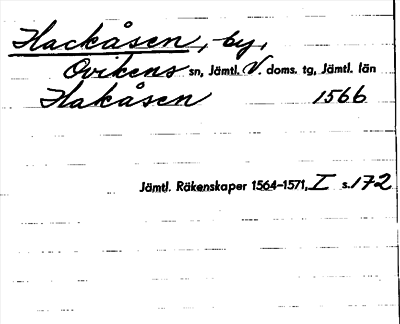 Hackåsen, by,
Ovikens sn, Jämtl. V. doms. tg, Jämtl. län
Hakåsen 1566
Jämtl. Räkenskaper 1564-1571, I s. 172